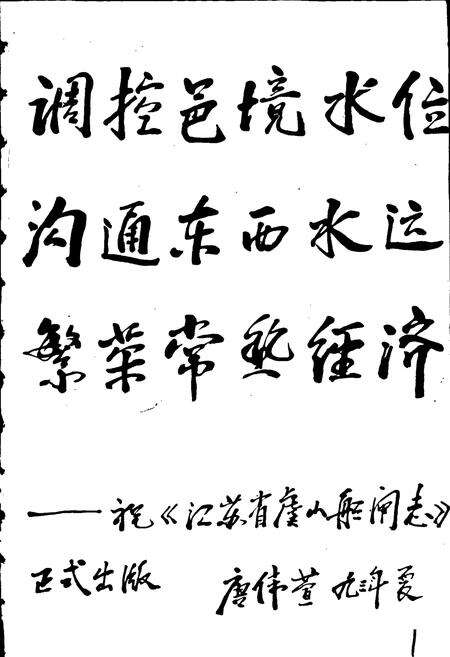 调控邑境水位
沟通东西水运
繁荣常熟经济
——祝《江苏省虞山船闸志》
正式出版 唐伟萱 九三年夏
1